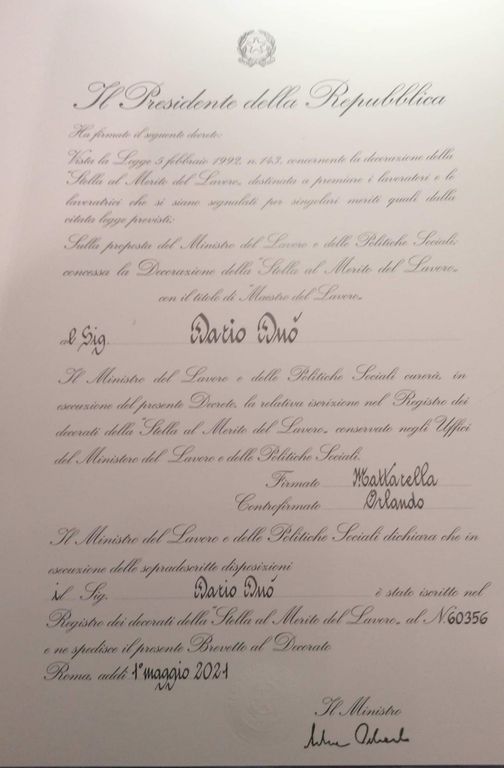 Il Presidente della Repubblica
Ha firmato il seguente decreto:
Vista la Legge 5 febbraio 1992, n. 143, concernente la decorazione della
"Stella al Merito del Lavoro" destinata a premiare i lavoratori e le
lavoratrici che si siano segnalati per singolari meriti quali dalla
citata legge previsti;
Sulla proposta del Ministro del Lavoro e delle Politiche Sociali;
concessa la Decorazione della "Stella al Merito del Lavoro"
con il titolo di "Maestro del Lavoro"
al Sig. Dario Duó
Il Ministro del Lavoro e delle Politiche Sociali curerà, in
esecuzione del presente Decreto, la relativa iscrizione nel Registro dei
decorati della "Stella al Merito del Lavoro" conservato negli Uffici
del Ministero del Lavoro e delle Politiche Sociali.
Firmato Mattarella
Controfirmato Orlando
Il Ministro del Lavoro e delle Politiche Sociali dichiara che in
esecuzione delle sopradescritte disposizioni
il Sig. Dario Duó è stato iscritto nel
Registro dei decorati della "Stella al Merito del Lavoro" al N. 60356
e ne spedisce il presente Brevetto al Decorato
Roma, addì 1° maggio 2021
Il Ministro